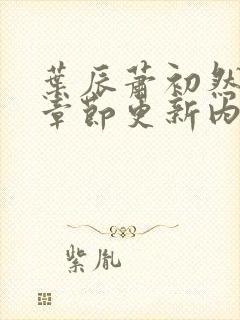 葉辰蕭初然
章節更新內
紫胤